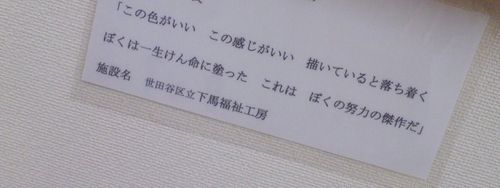 「この色がいい　この感じがいい　描いていると落ち着く
ぼくは一生けん命に塗った　これは　ぼくの努力の傑作だ」
施設名　世田谷区立下馬福祉工房